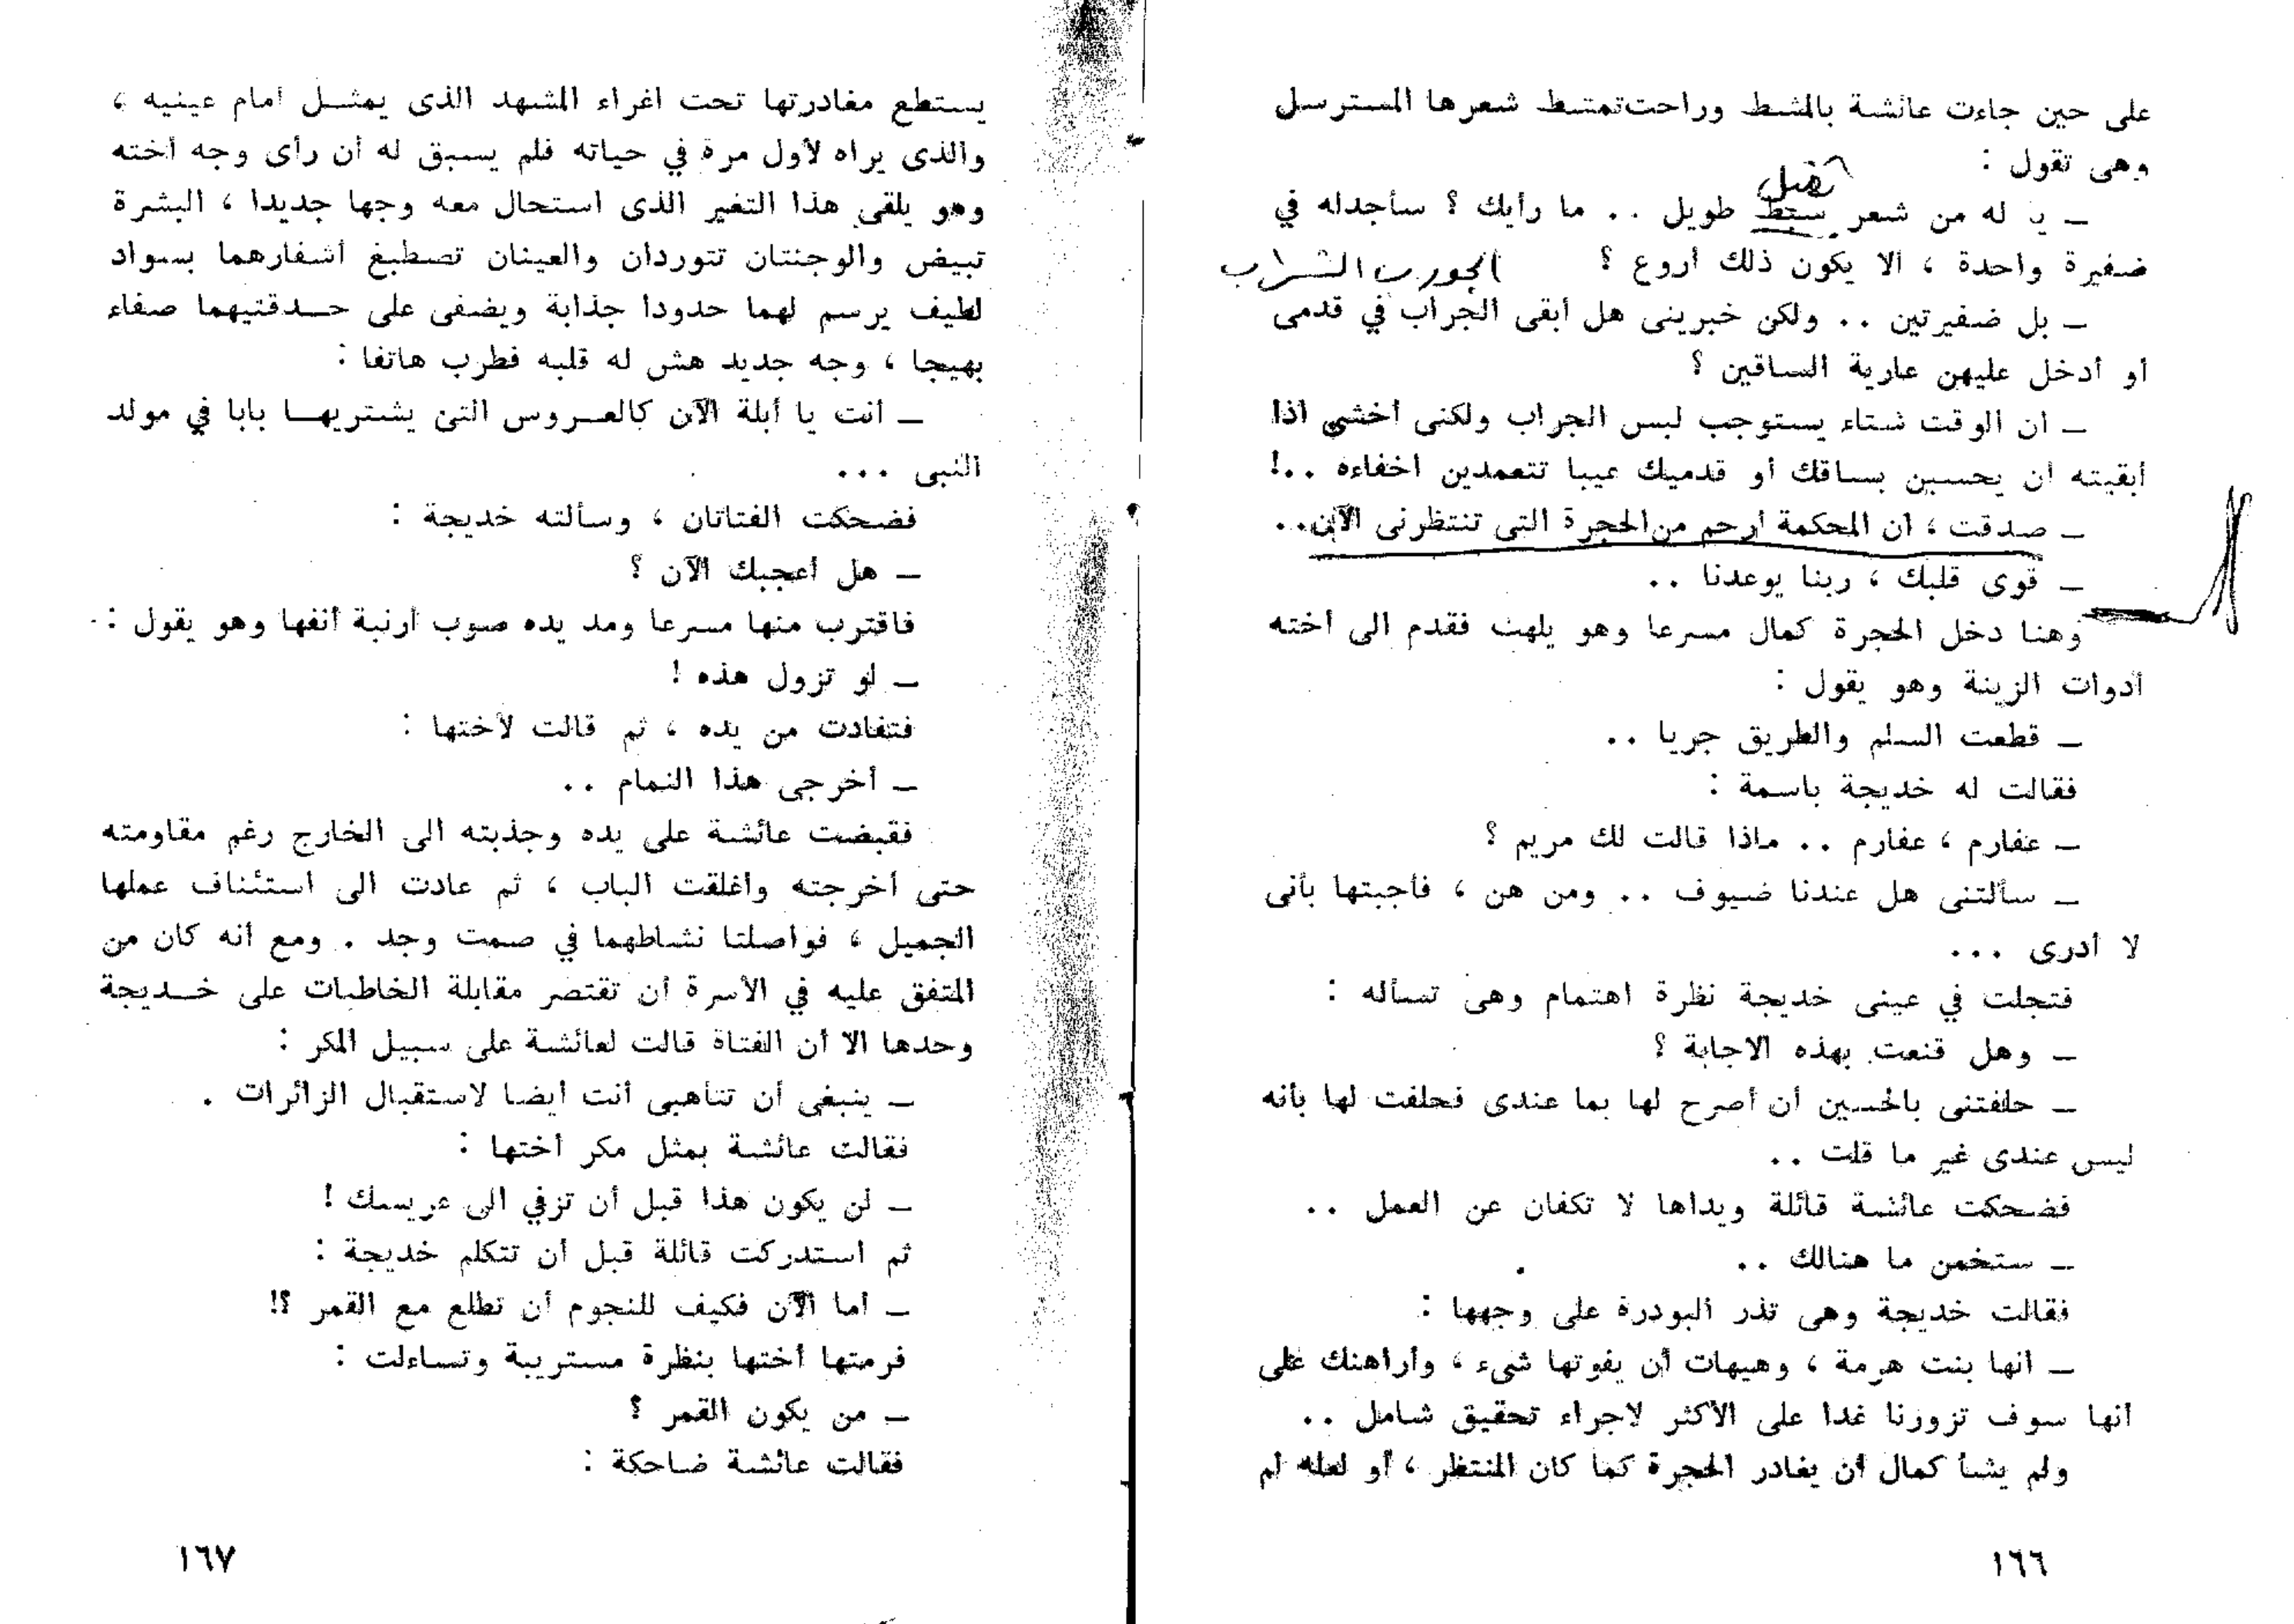 على حين جاءت عائشة بالمشط وراحت تمتشط شعرها المسترسل
وهى تقول :
ثقيل
ـ يا له من شعر سبط طويل .. ما رأيك ؟ سأجدله في
ضفيرة واحدة ، ألا يكون ذلك أروع ؟
الجورب الشراب
ـ بل ضفيرتين .. ولكن خبرينى هل أبقى الجراب في قدمى
أو أدخل عليهن عارية الساقين ؟
ـ ان الوقت شتاء يستوجب لبس الجراب ولكنى أخشى اذا
أبقيته أن يحسبن بساقك أو قدميك عيبا تتعمدين اخفاءه ..!
ـ صدقت ، ان المحكمة أرحم من الحجرة التى تنتظرنى الآن..
ـ قوى قلبك ، ربنا يوعدنا ..
وهنا دخل الحجرة كمال مسرعا وهو يلهث فقدم الى أخته
أدوات الزينة وهو يقول :
ـ قطعت السلم والطريق جريا ..
فقالت له خديجة باسمة :
ـ عفارم ، عفارم .. ماذا قالت لك مريم ؟
ـ سألتنى هل عندنا ضيوف .. ومن هن ، فأجبتها بأنى
لا أدرى ...
فتجلت في عينى خديجة نظرة اهتمام وهى تسأله :
ـ وهل قنعت بهذه الاجابة ؟
ـ حلفتنى بالحسين أن أصرح لها بما عندى فحلفت لها بأنه
ليس عندى غير ما قلت ..
فضحكت عائشة قائلة ويداها لا تكفان عن العمل ..
ـ ستخمن ما هنالك ..
فقالت خديجة وهى تذر البودرة على وجهها :
ـ انها بنت هرمة ، وهيهات أن يفوتها شىء ، وأراهنك على
أنها سوف تزورنا غدا على الأكثر لاجراء تحقيق شامل ..
ولم يشأ كمال أن يغادر الحجرة كما كان المنتظر ، أو لعله لم
١٦٦
يستطع مغادرتها تحت اغراء المشهد الذى يمثل أمام عينيه ،
والذى يراه لأول مرة في حياته فلم يسبق له أن رأى وجه أخته
وهو يلقى هذا التغير الذى استحال معه وجها جديدا ، البشرة
تبيض والوجنتان تتوردان والعينان تصطبغ أشفارهما بسواد
لطيف يرسم لهما حدودا جذابة ويضفى على حدقتيهما صفاء
بهيجا ، وجه جديد هش له قلبه فطرب هاتفا :
ـ أنت يا أبلة الآن كالعروس التى يشتريها بابا في مولد
النبى ...
فضحكت الفتاتان ، وسألته خديجة :
ـ هل أعجبك الآن ؟
فاقترب منها مسرعا ومد يده صوب أرنبة أنفها وهو يقول :
ـ لو تزول هذه !
فتفادت من يده ، ثم قالت لأختها :
ـ أخرجى هذا النمام ..
فقبضت عائشة على يده وجذبته الى الخارج رغم مقاومته
حتى أخرجته وأغلقت الباب ، ثم عادت الى استئناف عملها
الجميل ، فواصلتا نشاطهما في صمت وجد . ومع أنه كان من
المتفق عليه في الأسرة أن تقتصر مقابلة الخاطبات على خديجة
وحدها الا أن الفتاة قالت لعائشة على سبيل المكر :
ـ ينبغى أن تتأهبى أنت أيضا لاستقبال الزائرات .
فقالت عائشة بمثل مكر أختها :
ـ لن يكون هذا قبل أن تزفي الى عريسك !
ثم استدركت قائلة قبل أن تتكلم خديجة :
ـ أما الآن فكيف للنجوم أن تطلع مع القمر ؟!
فرمتها أختها بنظرة مستريبة وتساءلت :
ـ من يكون القمر ؟
فقالت عائشة ضاحكة :
١٦٧